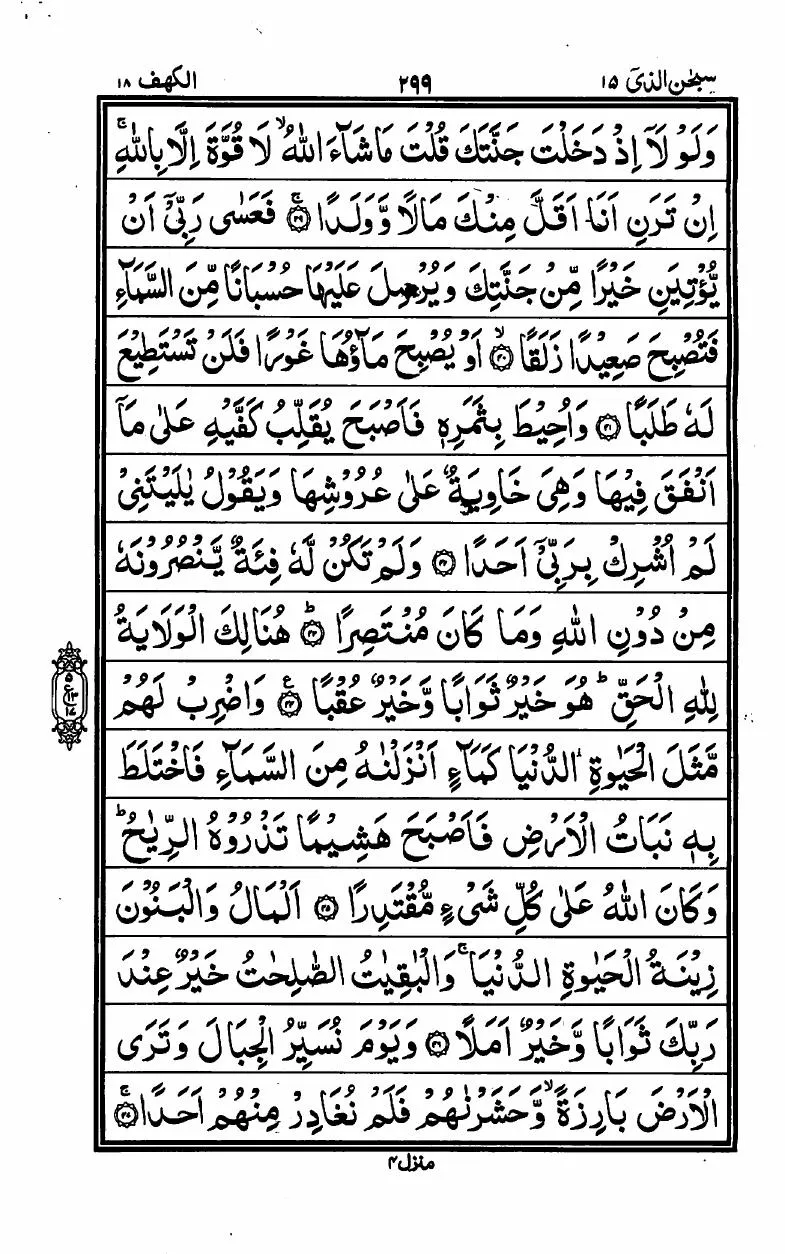 سبحٰن الذیٓ ۱۵
۲۹۹
الکهف ۱۸
وَلَوۡ لَاۤ اِذۡ دَخَلۡتَ جَنَّتَكَ قُلۡتَ مَا شَآءَ اللّٰهُ ۙ لَا قُوَّةَ اِلَّا بِاللّٰهِ ۚ
اِنۡ تَرَنِ اَنَا اَقَلَّ مِنۡكَ مَالًا وَّوَلَدًا ۚ ﴿۳۹﴾ فَعَسٰى رَبِّىۡۤ اَنۡ
يُّؤۡتِيَنِ خَيۡرًا مِّنۡ جَنَّتِكَ وَيُرۡسِلَ عَلَيۡهَا حُسۡبَانًا مِّنَ السَّمَآءِ
فَتُصۡبِحَ صَعِيۡدًا زَلَقًا ۙ ﴿۴۰﴾ اَوۡ يُصۡبِحَ مَآؤُهَا غَوۡرًا فَلَنۡ تَسۡتَطِيۡعَ
لَهٗ طَلَبًا ﴿۴۱﴾ وَاُحِيۡطَ بِثَمَرِهٖ فَاَصۡبَحَ يُقَلِّبُ كَفَّيۡهِ عَلٰى مَاۤ
اَنۡفَقَ فِيۡهَا وَهِىَ خَاوِيَةٌ عَلٰى عُرُوۡشِهَا وَيَقُوۡلُ يٰلَيۡتَنِىۡ
لَمۡ اُشۡرِكۡ بِرَبِّىۡۤ اَحَدًا ﴿۴۲﴾ وَلَمۡ تَكُنۡ لَّهٗ فِئَةٌ يَّنۡصُرُوۡنَهٗ
مِنۡ دُوۡنِ اللّٰهِ وَمَا كَانَ مُنۡتَصِرًا ؕ ﴿۴۳﴾ هُنَالِكَ الۡوَلَايَةُ
لِلّٰهِ الۡحَقِّ ؕ هُوَ خَيۡرٌ ثَوَابًا وَّخَيۡرٌ عُقۡبًا ﴿۴۴﴾ ع وَاضۡرِبۡ لَهُمۡ
۵ ع ۱۳ ۱۷
مَّثَلَ الۡحَيٰوةِ الدُّنۡيَا كَمَآءٍ اَنۡزَلۡنٰهُ مِنَ السَّمَآءِ فَاخۡتَلَطَ
بِهٖ نَبَاتُ الۡاَرۡضِ فَاَصۡبَحَ هَشِيۡمًا تَذۡرُوۡهُ الرِّيٰحُ ؕ
وَكَانَ اللّٰهُ عَلٰى كُلِّ شَىۡءٍ مُّقۡتَدِرًا ﴿۴۵﴾ اَلۡمَالُ وَالۡبَنُوۡنَ
زِيۡنَةُ الۡحَيٰوةِ الدُّنۡيَا ۚ وَالۡبٰقِيٰتُ الصّٰلِحٰتُ خَيۡرٌ عِنۡدَ
رَبِّكَ ثَوَابًا وَّخَيۡرٌ اَمَلًا ﴿۴۶﴾ وَيَوۡمَ نُسَيِّرُ الۡجِبَالَ وَتَرَى
الۡاَرۡضَ بَارِزَةً ۙ وَّحَشَرۡنٰهُمۡ فَلَمۡ نُغَادِرۡ مِنۡهُمۡ اَحَدًا ۚ ﴿۴۷﴾
منزل ۴